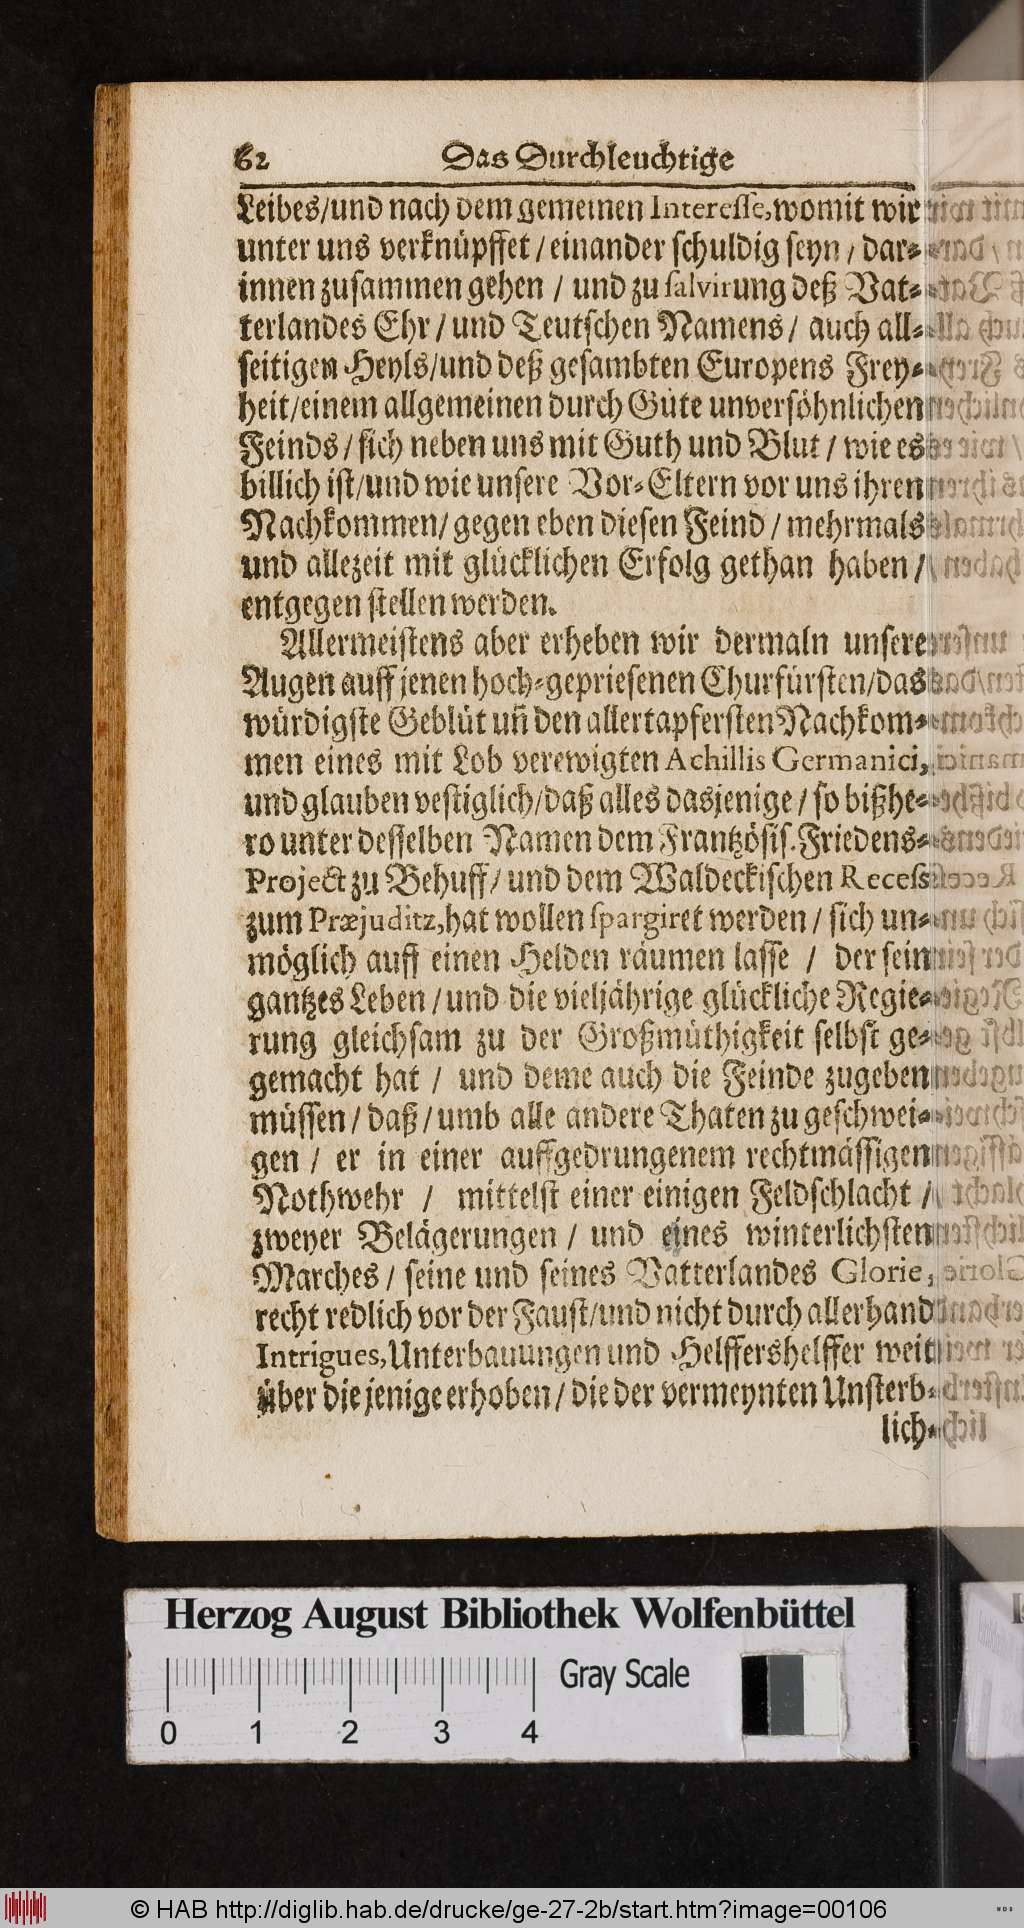 62 Das Durchleuchtige
Leibes/und nach dem gemeinen Interesse, womit wir
unter uns verknüpffet / einander schuldig seyn / dar-
innen zusammen gehen / und zu salvirung deß Vat-
terlandes Ehr / und Teutschen Namens / auch all-
seitigen Heyls/und deß gesambten Europens Frey-
heit/einem allgemeinen durch Güte unversöhnlichen
Feinds / sich neben uns mit Guth und Blut / wie es
billich ist/und wie unsere Vor-Eltern vor uns ihren
Nachkommen/ gegen eben diesen Feind / mehrmals
und allezeit mit glücklichen Erfolg gethan haben /
entgegen stellen werden.
Allermeistens aber erheben wir dermaln unsere
Augen auff jenen hoch-gepriesenen Churfürsten/das
würdigste Geblüt uñ den allertapfersten Nachkom-
men eines mit Lob verewigten Achillis Germanici,
und glauben vestiglich/daß alles dasjenige / so bißhe-
ro unter desselben Namen dem Frantzösis. Friedens-
Project zu Behuff/ und dem Waldeckischen Recess
zum Præjuditz, hat wollen spargiret werden / sich un-
möglich auff einen Helden räumen lasse / der sein
gantzes Leben / und die vieljährige glückliche Regie-
rung gleichsam zu der Großmüthigkeit selbst ge-
gemacht hat / und deme auch die Feinde zugeben
müssen / daß / umb alle andere Thaten zu geschwei-
gen / er in einer auffgedrungenem rechtmässigen
Nothwehr / mittelst einer einigen Feldschlacht /
zweyer Belägerungen / und eines winterlichsten
Marches / seine und seines Vatterlandes Glorie,
recht redlich vor der Faust/und nicht durch allerhand
Intrigues, Unterbauungen und Helffershelffer weit
über die jenige erhoben / die der vermeynten Unsterb-
lich-
Herzog August Bibliothek Wolfenbüttel
Gray Scale
0 1 2 3 4
© HAB http://diglib.hab.de/drucke/ge-27-2b/start.htm?image=00106